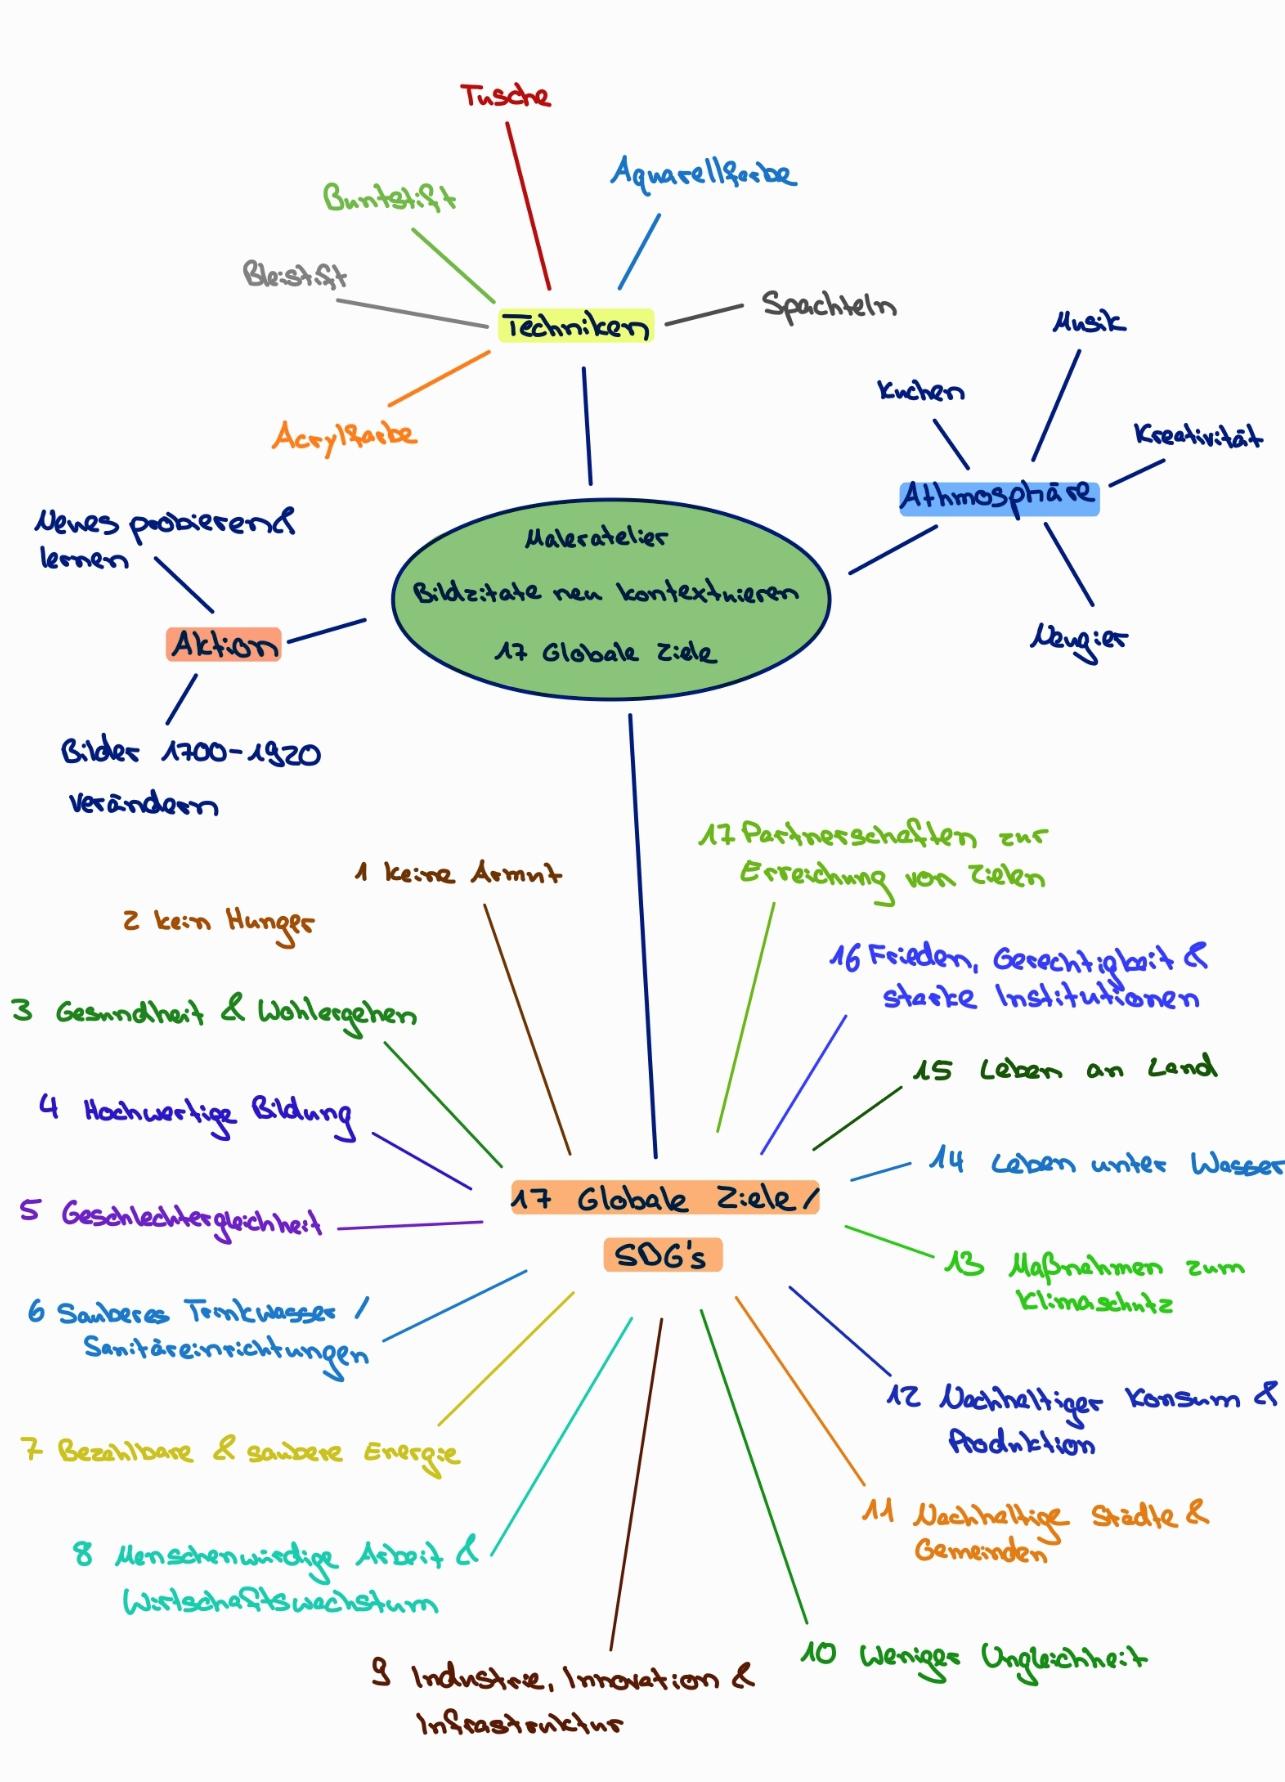 Tusche
Aquarellfarbe
Buntstift
Bleistift
Spachteln
Techniken
Acrylfarbe
Musik
Kuchen
Kreativität
Athmosphäre
Neugier
Neues probieren &
lernen
Aktion
Bilder 1700-1920
verändern
Maleratelier
Bildzitate neu kontextuieren
17 Globale Ziele
17 Partnerschaften zur
Erreichung von Zielen
1 keine Armut
2 kein Hunger
16 Frieden, Gerechtigkeit &
starke Institutionen
3 Gesundheit & Wohlergehen
15 Leben an Land
4 Hochwertige Bildung
14 Leben unter Wasser
17 Globale Ziele /
SDG's
5 Geschlechtergleichheit
13 Maßnahmen zum
Klimaschutz
6 Sauberes Trinkwasser /
Sanitäreinrichtungen
12 Nachhaltiger Konsum &
Produktion
7 Bezahlbare & saubere Energie
11 Nachhaltige Städte &
Gemeinden
8 Menschenwürdige Arbeit &
Wirtschaftswachstum
10 Weniger Ungleichheit
9 Industrie, Innovation &
Infrastruktur